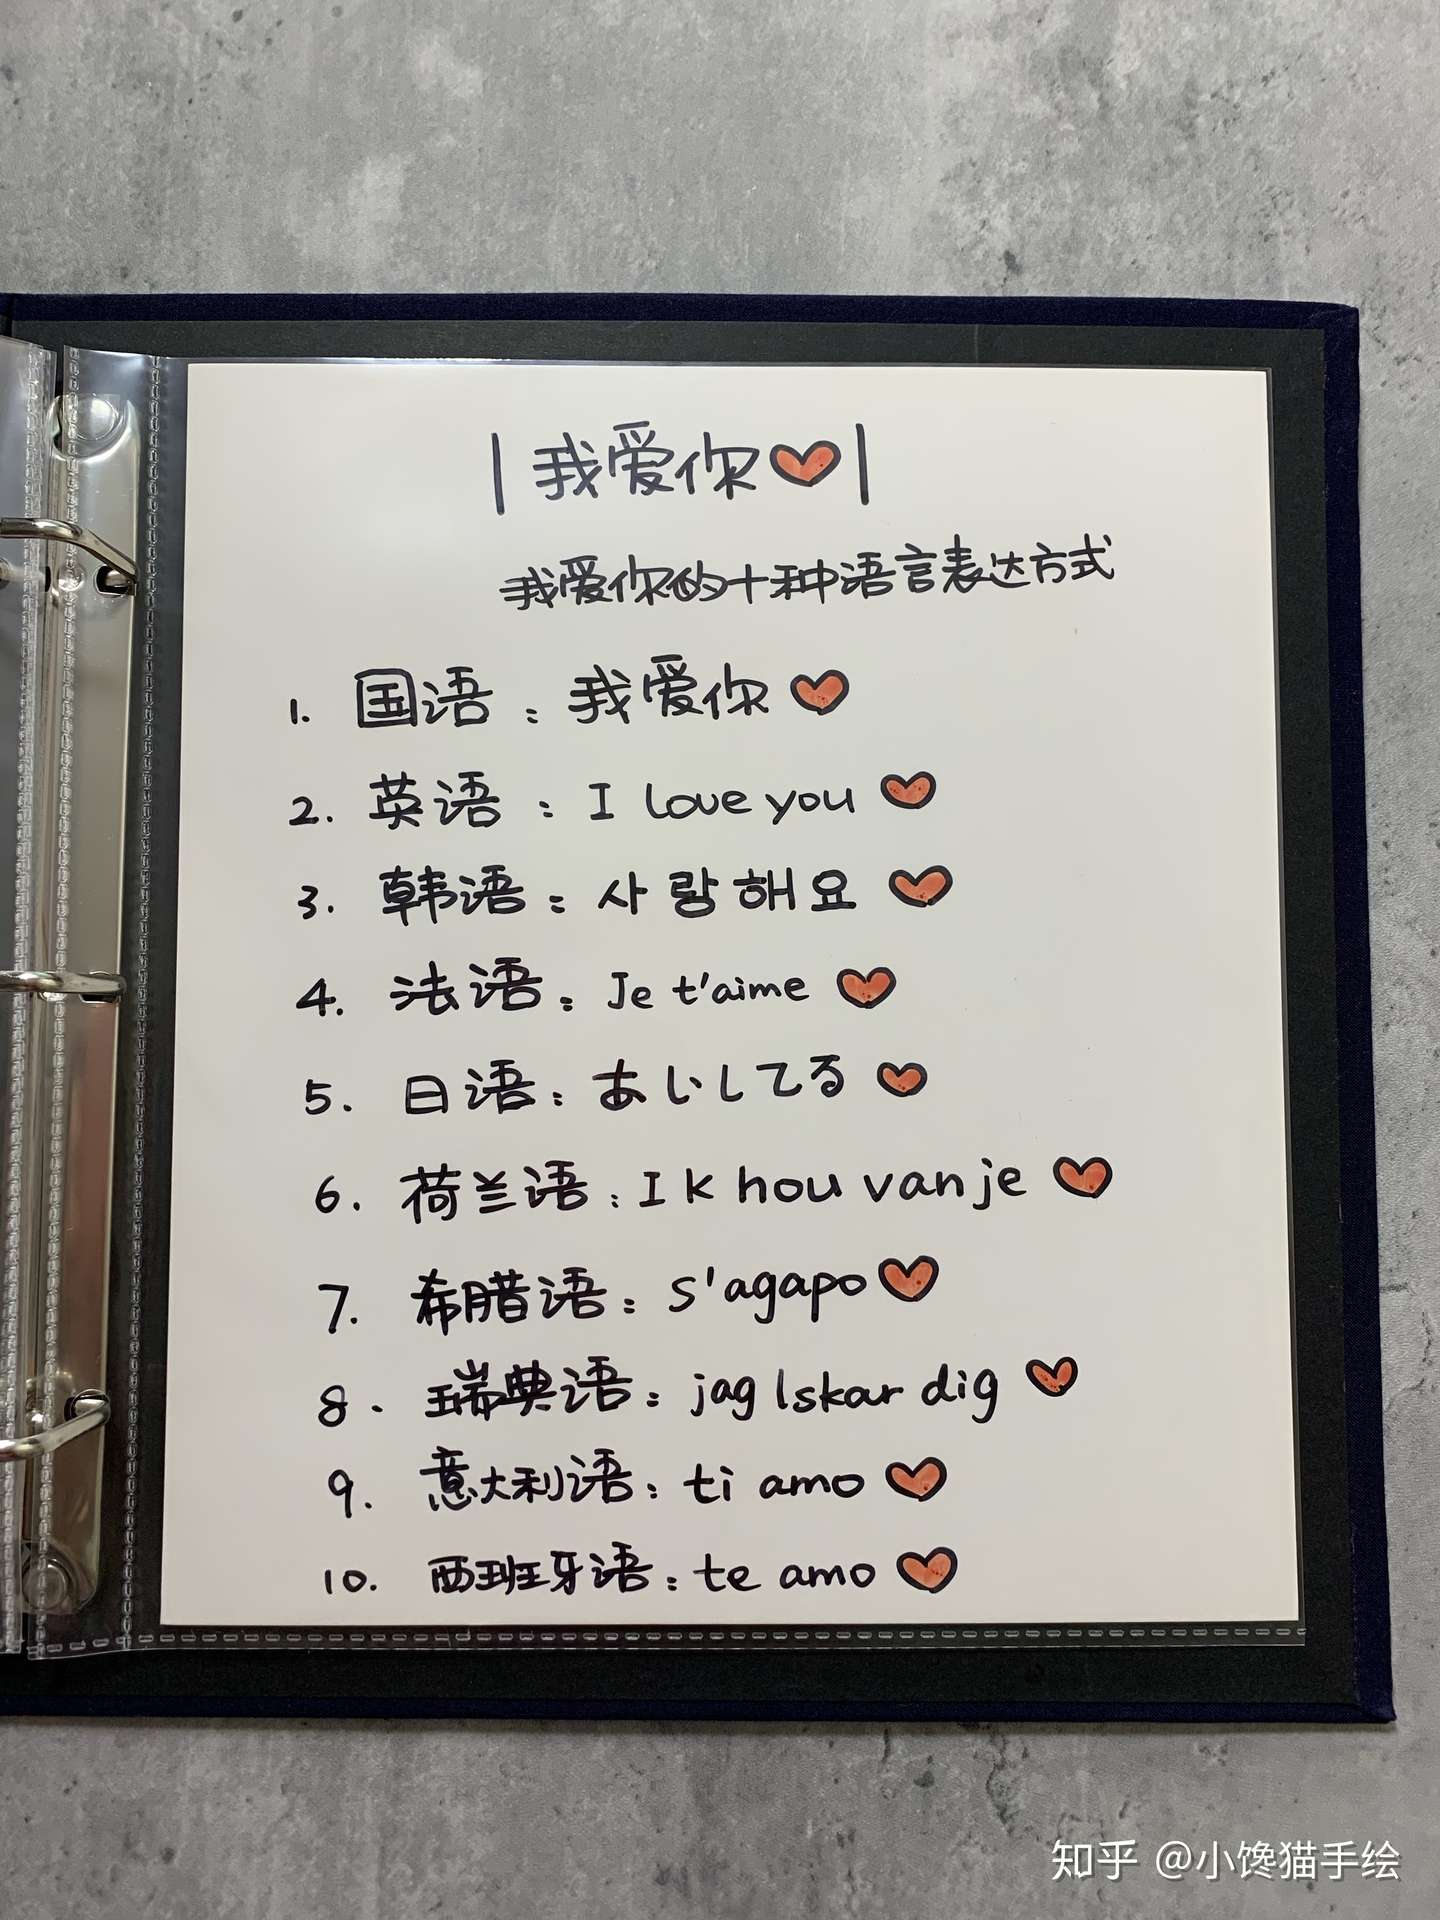 |我爱你|
我爱你的十种语言表达方式
1. 国语：我爱你
2. 英语：I love you
3. 韩语：사랑해요
4. 法语：Je t'aime
5. 日语：あいしてる
6. 荷兰语：Ik hou van je
7. 希腊语：s'agapo
8. 瑞典语：jag lskar dig
9. 意大利语：ti amo
10. 西班牙语：te amo
知乎 @小馋猫手绘